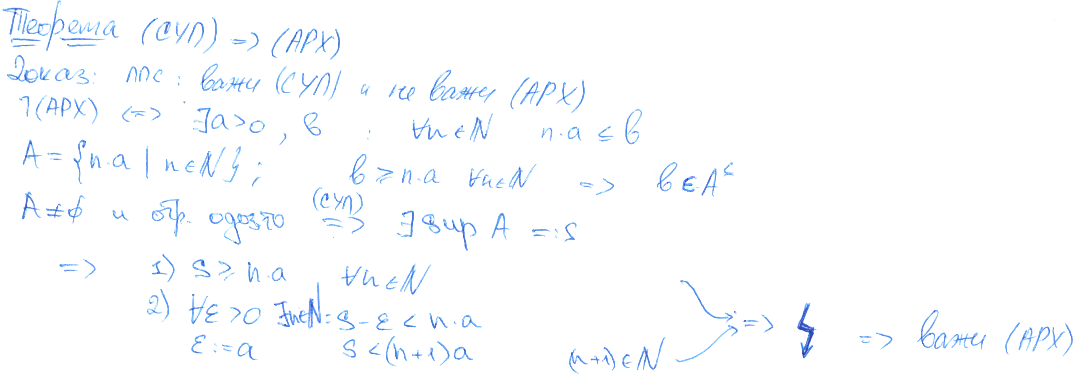 Теорема (СУП) => (АРХ)
Доказ: ппс: важи (СУП) и не важи (АРХ)
⌉(АРХ) <=> ∃a>0, b : ∀n∈N n·a ≤ b
A = {n·a | n∈N}; b ≥ n·a ∀n∈N => b∈A^≤
A≠∅ и огр. одозго (СУП) => ∃ sup A =: s
=> 1) s ≥ n·a, ∀n∈N
2) ∀ε>0 ∃n∈N: s-ε < n·a
ε:=a s<(n+1)a (n+1)∈N => ↯ => важи (АРХ)